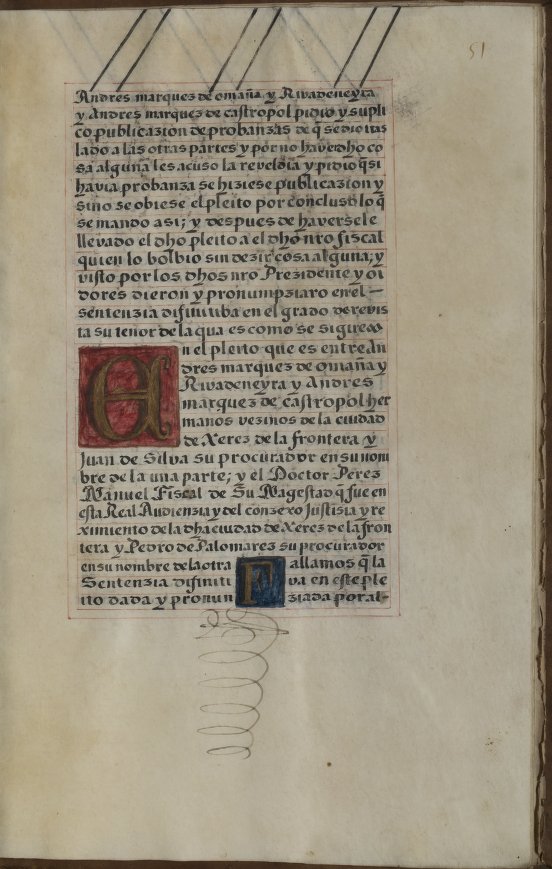 51
Andres marquez de omaña y Rivadeneyra
y Andres marquez de castropol pidio y supli
co publicazion de probanzas de q̃ se dio tras
lado a las otras partes y por no haver dho co
sa alguna les acuso la reveldia y pidio q̃ si
havia probanza se hiziese publicazion y
sino se obiese el pleito por concluso lo q̃
se mando asi; y despues de haversele
llevado el dho pleito a el dho nro fiscal
quien lo bolbio sin dezir cosa alguna; y
visto por los dhos nro Prezidente y oi
dores dieron y pronumpziaro en el
sentenzia difinitiba en el grado de revis
ta su tenor de la qua es como se sigue
En el pleito que es entre An
dres marquez de omaña y
Rivadeneyra y Andres
marquez de castropol her
manos vezinos de la ciudad
de Xerez de la frontera y
Juan de Silva su procurador en su nom
bre de la una parte; y el Doctor Perez
Manuel Fiscal de Su Magestad q̃ fue en
esta Real Audienzia y del conzexo Justisia y re
ximiento de la dha ciudad de Xerez de la fron
tera y Pedro de Palomarez su procurador
en su nombre de la otra Fallamos q̃ la
Sentenzia difiniti va en este ple
ito dada y pronun ziada por al-